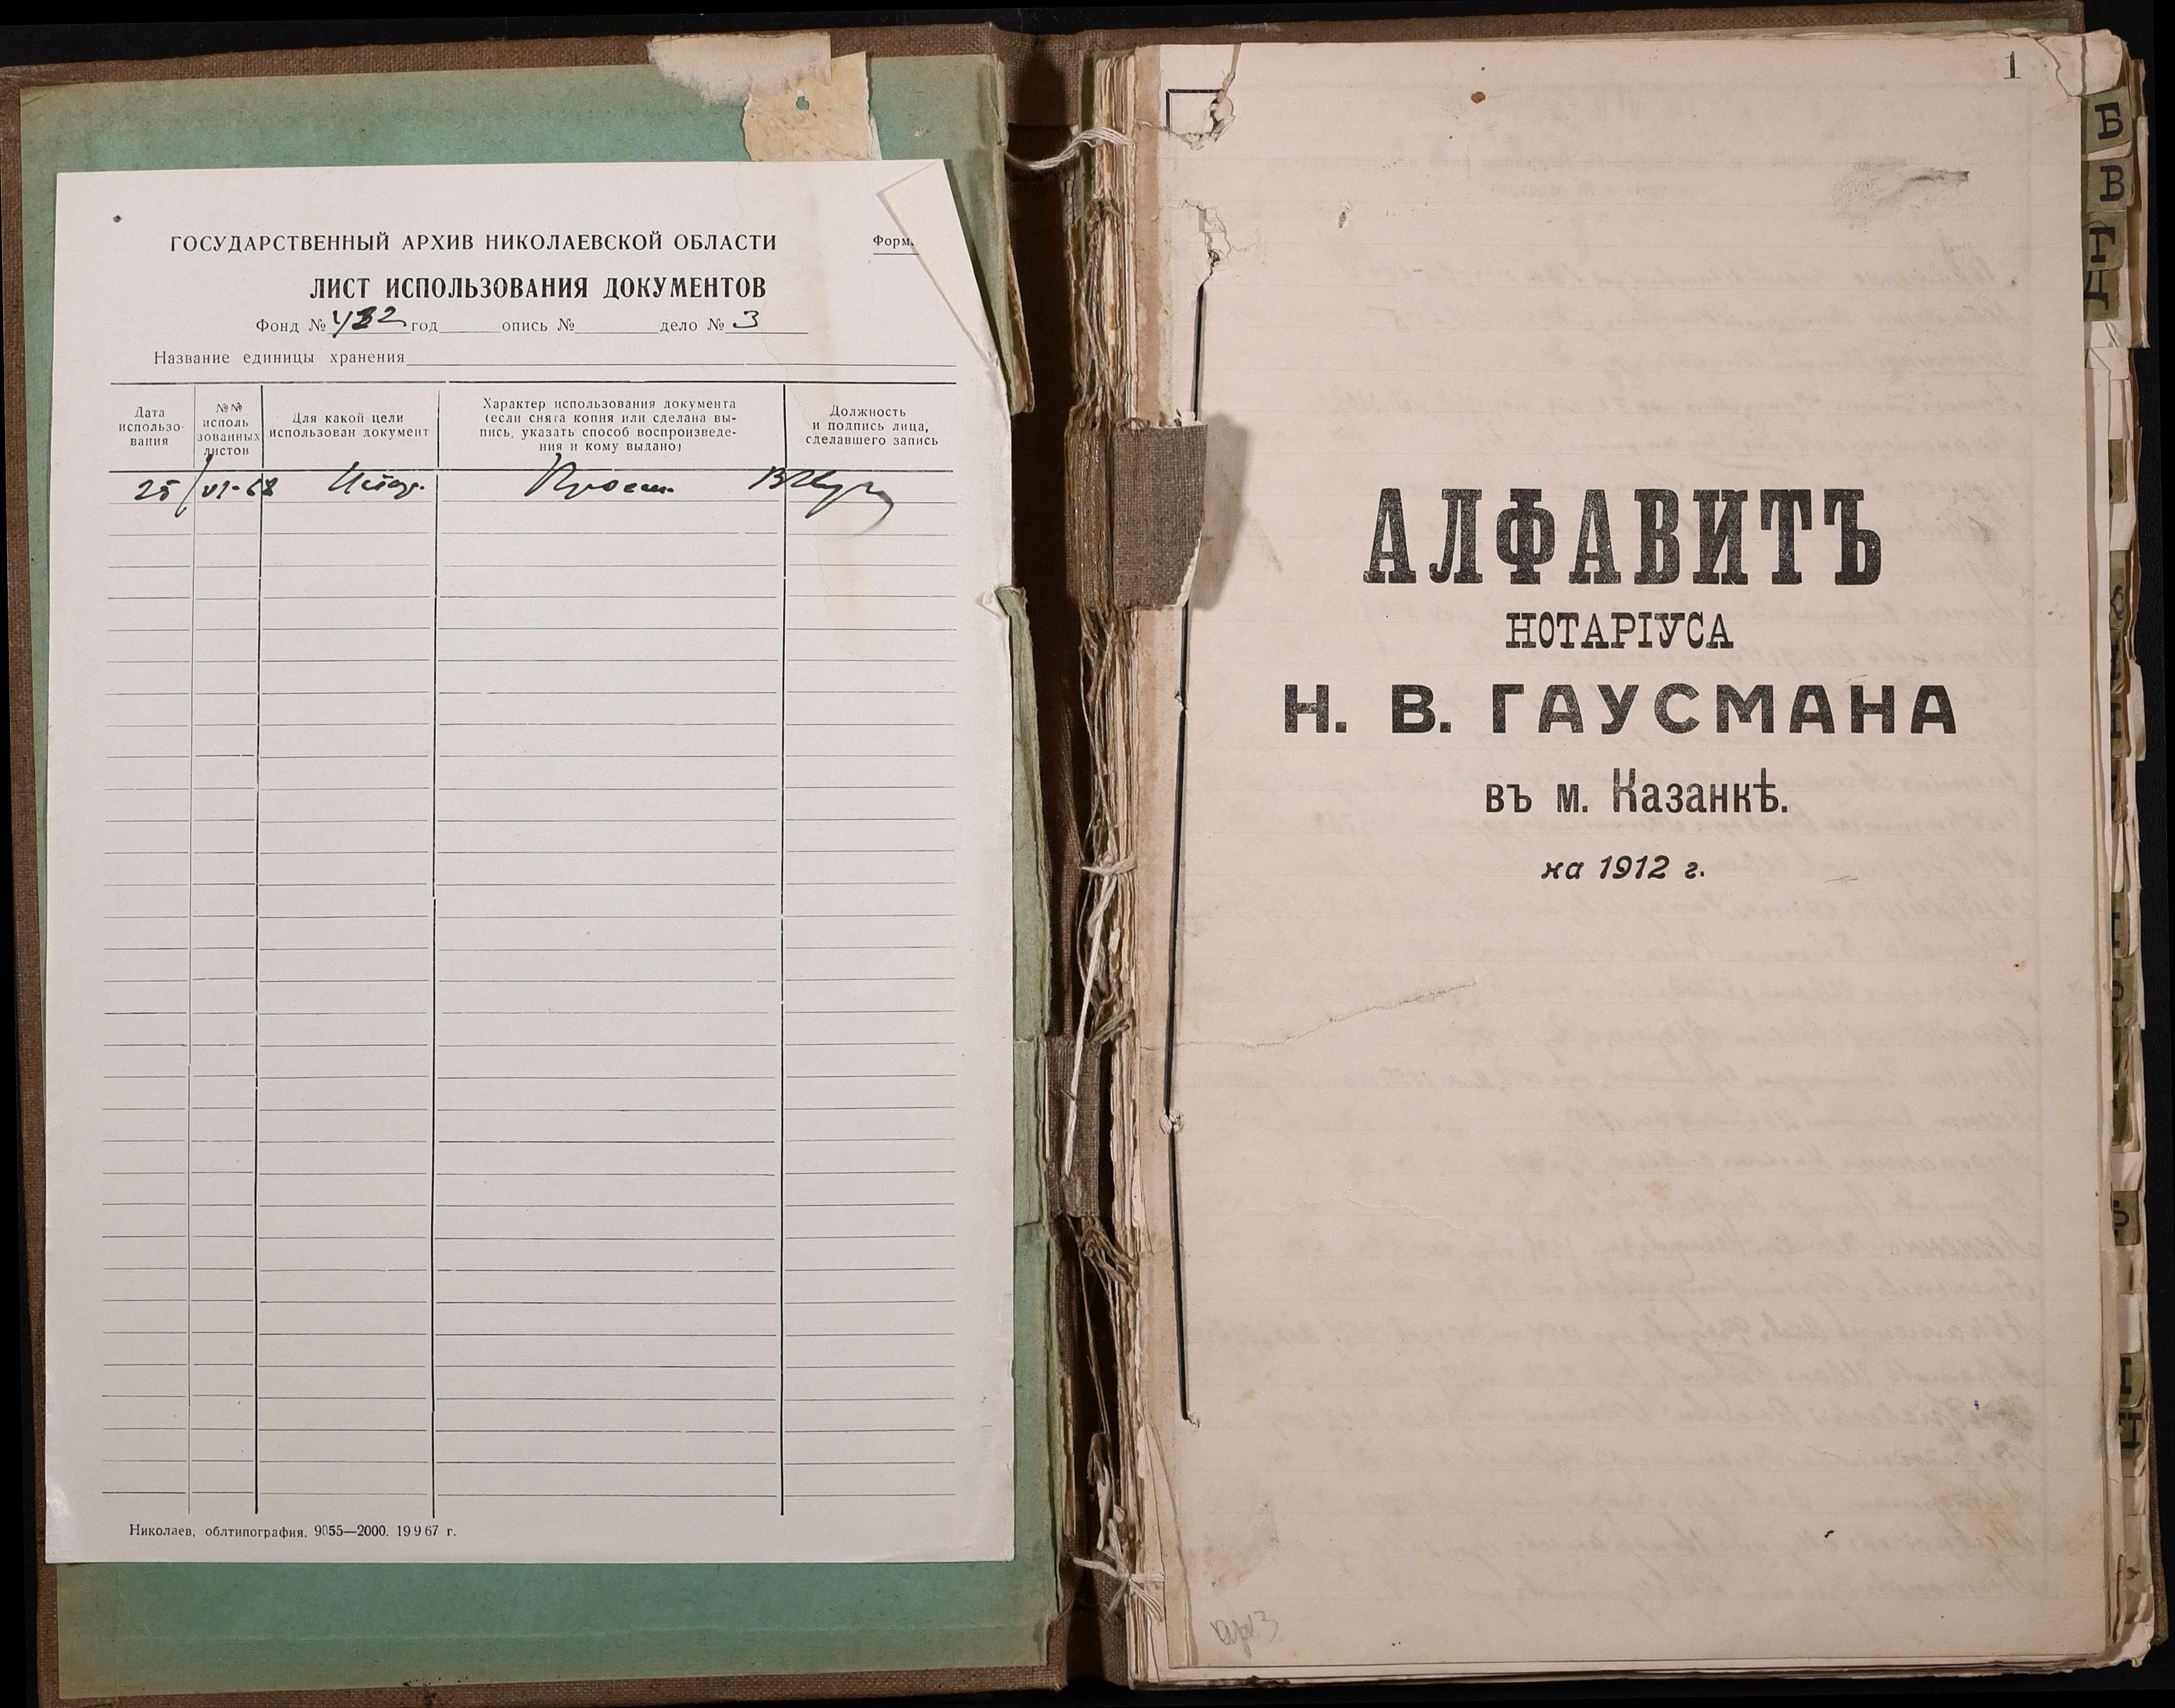 ГОСУДАРСТВЕННЫЙ АРХИВ НИКОЛАЕВСКОЙ ОБЛАСТИ
Форм
ЛИСТ ИСПОЛЬЗОВАНИЯ ДОКУМЕНТОВ
Фонд № 432 год опись № дело № 3
Название единицы хранения
Дата
использо-
вания
№№
исполь
зованных
листов
Для какой цели
использован документ
Характер использования документа
(если снята копия или сделана вы-
пись, указать способ воспроизведе-
ния и кому выдано)
Должность
и подпись лица,
сделавшего запись
25/VI-68
Николаев, облтипография. 9055—2000. 19967 г.
1
АЛФАВИТЪ
НОТАРІУСА
Н. В. ГАУСМАНА
въ м. Казанкѣ.
на 1912 г.
Б
В
Г
Д